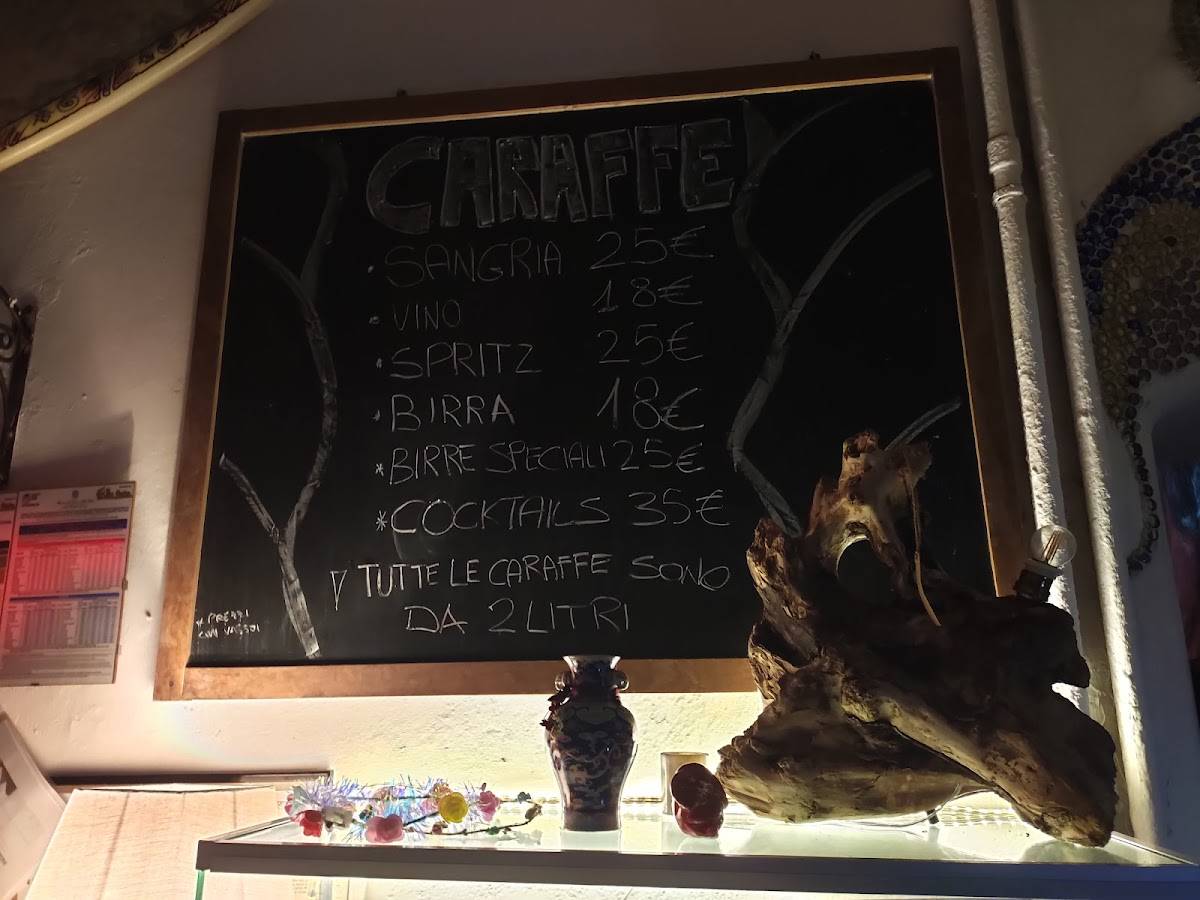 CARAFFE
• SANGRIA 25€
• VINO 18€
• SPRITZ 25€
• BIRRA 18€
* BIRRE SPECIALI 25€
* COCKTAILS 35€
TUTTE LE CARAFFE SONO
DA 2 LITRI
* PREZZI